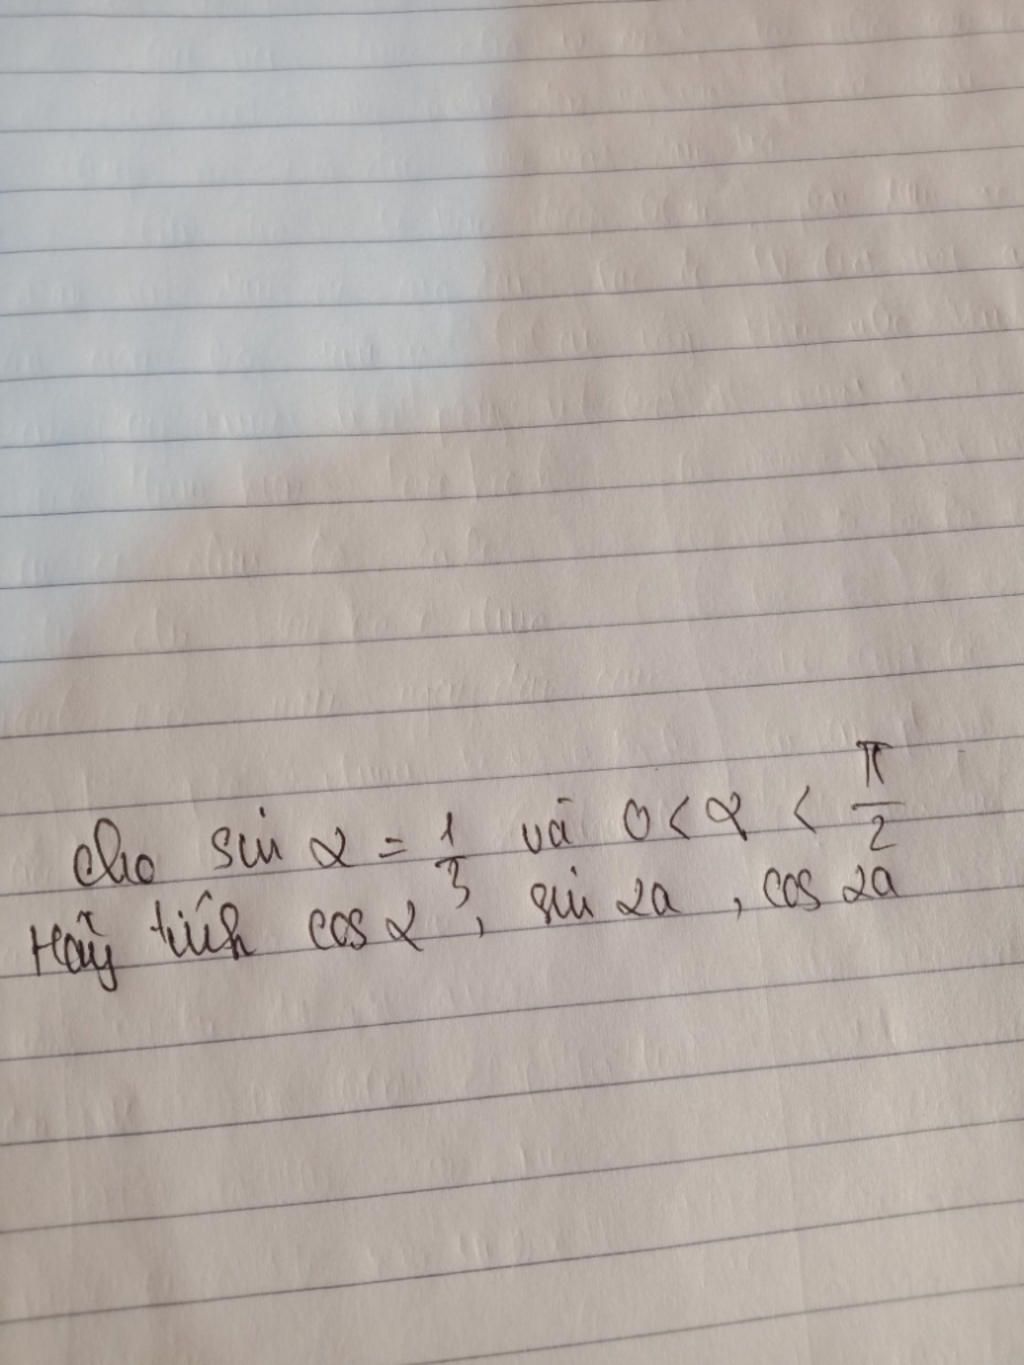 Cho sin α = 1/3 và 0 < α < π/2
Hãy tính cos α, sin 2a, cos 2a